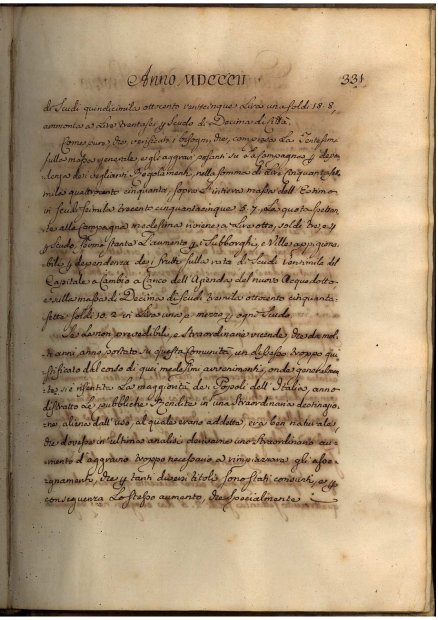 Anno MDCCCII 331
di Scudi quindicimila ottocento venticinque Lira una soldi 18.8,
ammonta a Lire trentasei Scudo di Decima di Città.
Comespure, che, verificati i bisogni, che, compresa la
sulla massa generale, e gli aggravi pesanti su la Campagna
de' veglianti Regolamenti, nella somma di Lire Cinquanta
mila quattrocento cinquanta, sopra l'intera massa dell'Estimo
in scudi seimila trecento cinquantacinque 5. 7, La quota spettan
te alla Campagna medesima viene a Lire otto, soldi tre,
Scudo, ferma stante l'aumento i Subborghi, e Ville
bile dipendenza de' frutti sulla rata di Scudi Ventimila del
Capitale a Cambio a Carico dell'Azienda del nuovo Acquedotto
sulla massa di Decima di Scudi tremila ottocento cinquanta
sette soldi 10.2 in Lire una e mezzo ogni Scudo.
Se le non prevedibili, e straordinarie vicende, che da mol
ti anni anno portato su questa Comunità, un dissesto troppo giu
stificato dal corso di que' medesimi avvenimenti, onde generalmen
te, si è risentita La maggiorità de' Popoli dell'Italia, anno
distratto Le pubbliche Rendite in una straordinaria destinazio
ne, alieno dall'uso, al quale erano addette, era ben naturale,
che dovesse in ultima analisi derivarne uno straordinario au
mento d'aggravio troppo necessario a rimpiazzare gli asse
gnamenti, che tanti diversi titoli sono stati consunti, e
conseguenza Lo stesso aumento, che specialmente